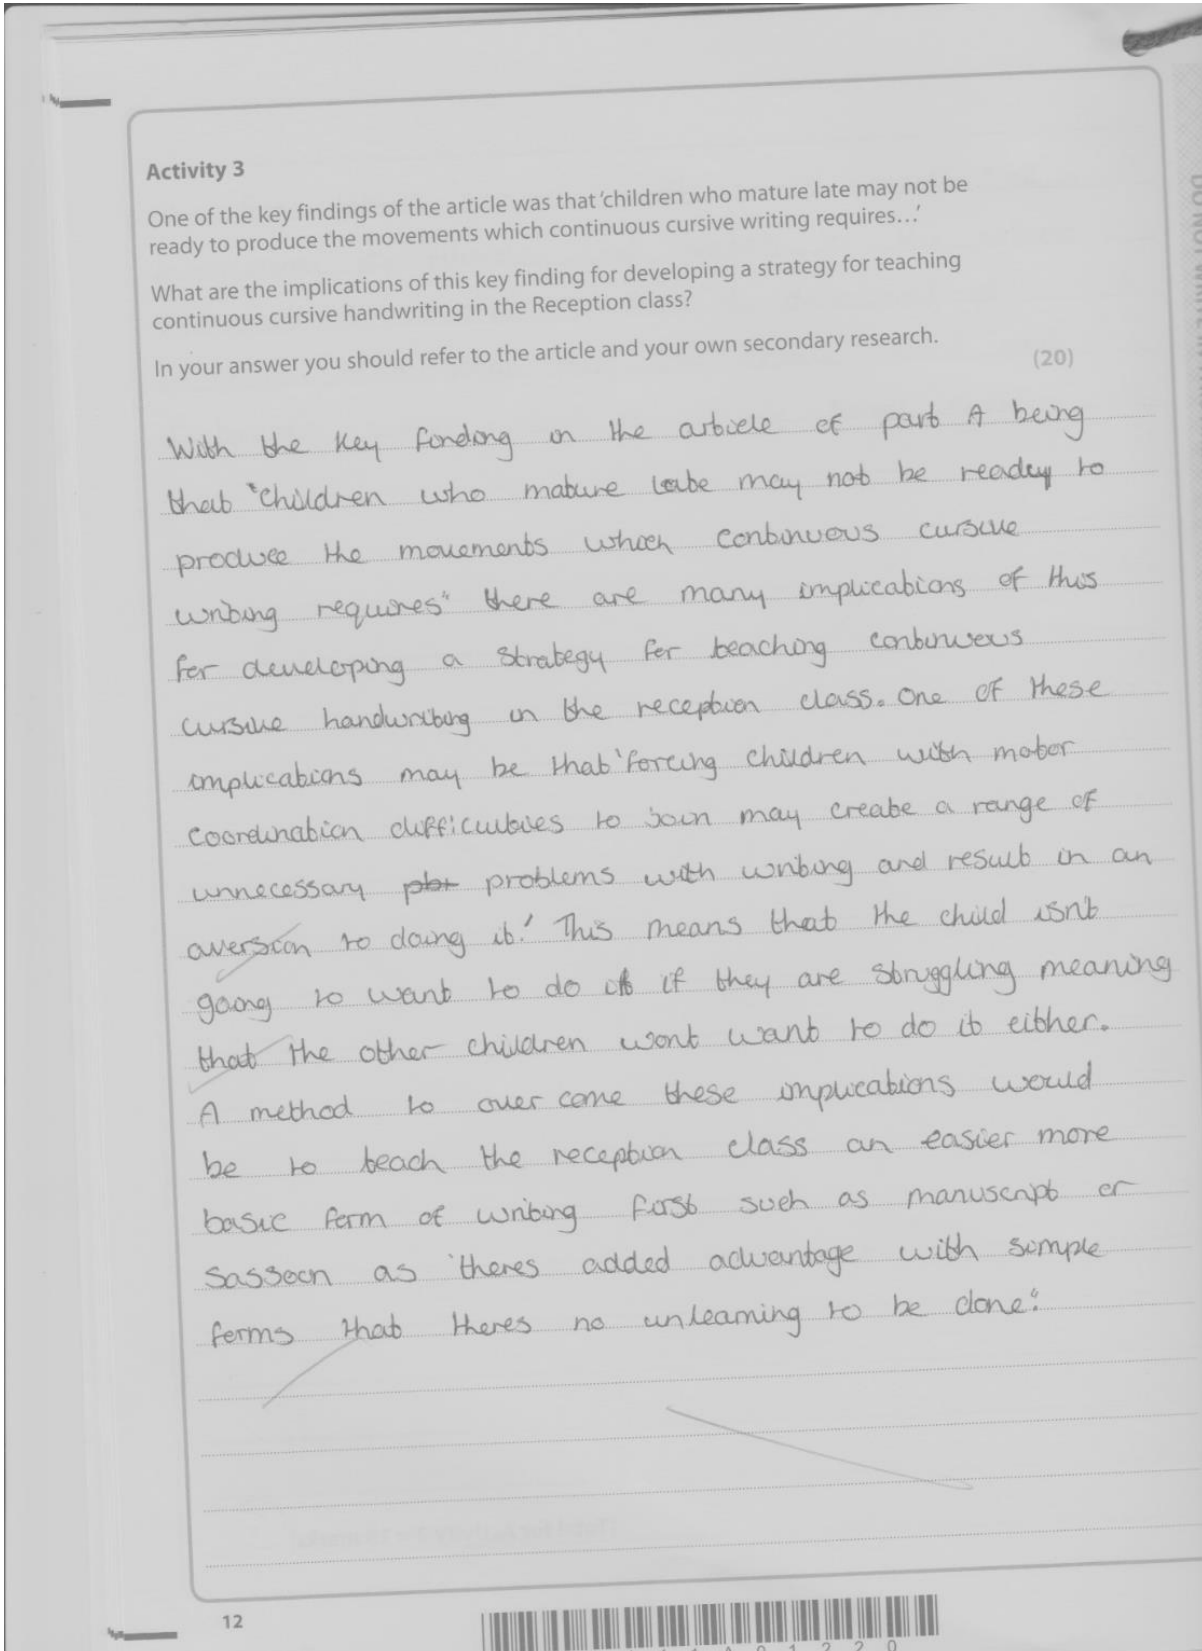 Activity 3
One of the key findings of the article was that ‘children who mature late may not be
ready to produce the movements which continuous cursive writing requires…’
What are the implications of this key finding for developing a strategy for teaching
continuous cursive handwriting in the Reception class?
In your answer you should refer to the article and your own secondary research.
(20)
With the key finding in the article of part A being
that "children who mature late may not be ready to
produce the movements which continuous cursive
writing requires" there are many implications of this
for developing a strategy for teaching continuous
cursive handwriting in the reception class. One of these
implications may be that 'forcing children with motor
coordination difficulties to join may create a range of
unnecessary problems with writing and result in an
aversion to doing it.' This means that the child isn't
going to want to do it if they are struggling meaning
that the other children wont want to do it either.
A method to over come these implications would
be to teach the reception class an easier more
basic form of writing first such as manuscript or
sassoon as 'theres added advantage with simple
forms that theres no unlearning to be done."
12